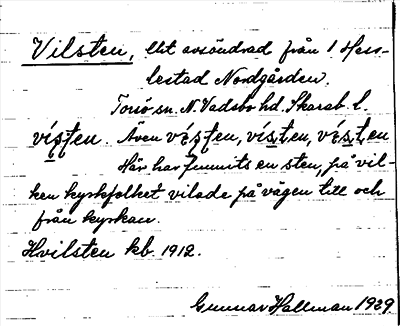 Vilsten, Utt avsöndrad från 1 Hass-
lestad Nordgården.
Torsö sn. N. Vadsbo hd. Skarab. l.
vísten. Även vísten, vísten, vísten
Här har funnits en sten, på vil-
ken kyrkfolket vilade på vägen till och
från kyrkan.
Hvilsten kb. 1912.
Gunnar Hallman 1939